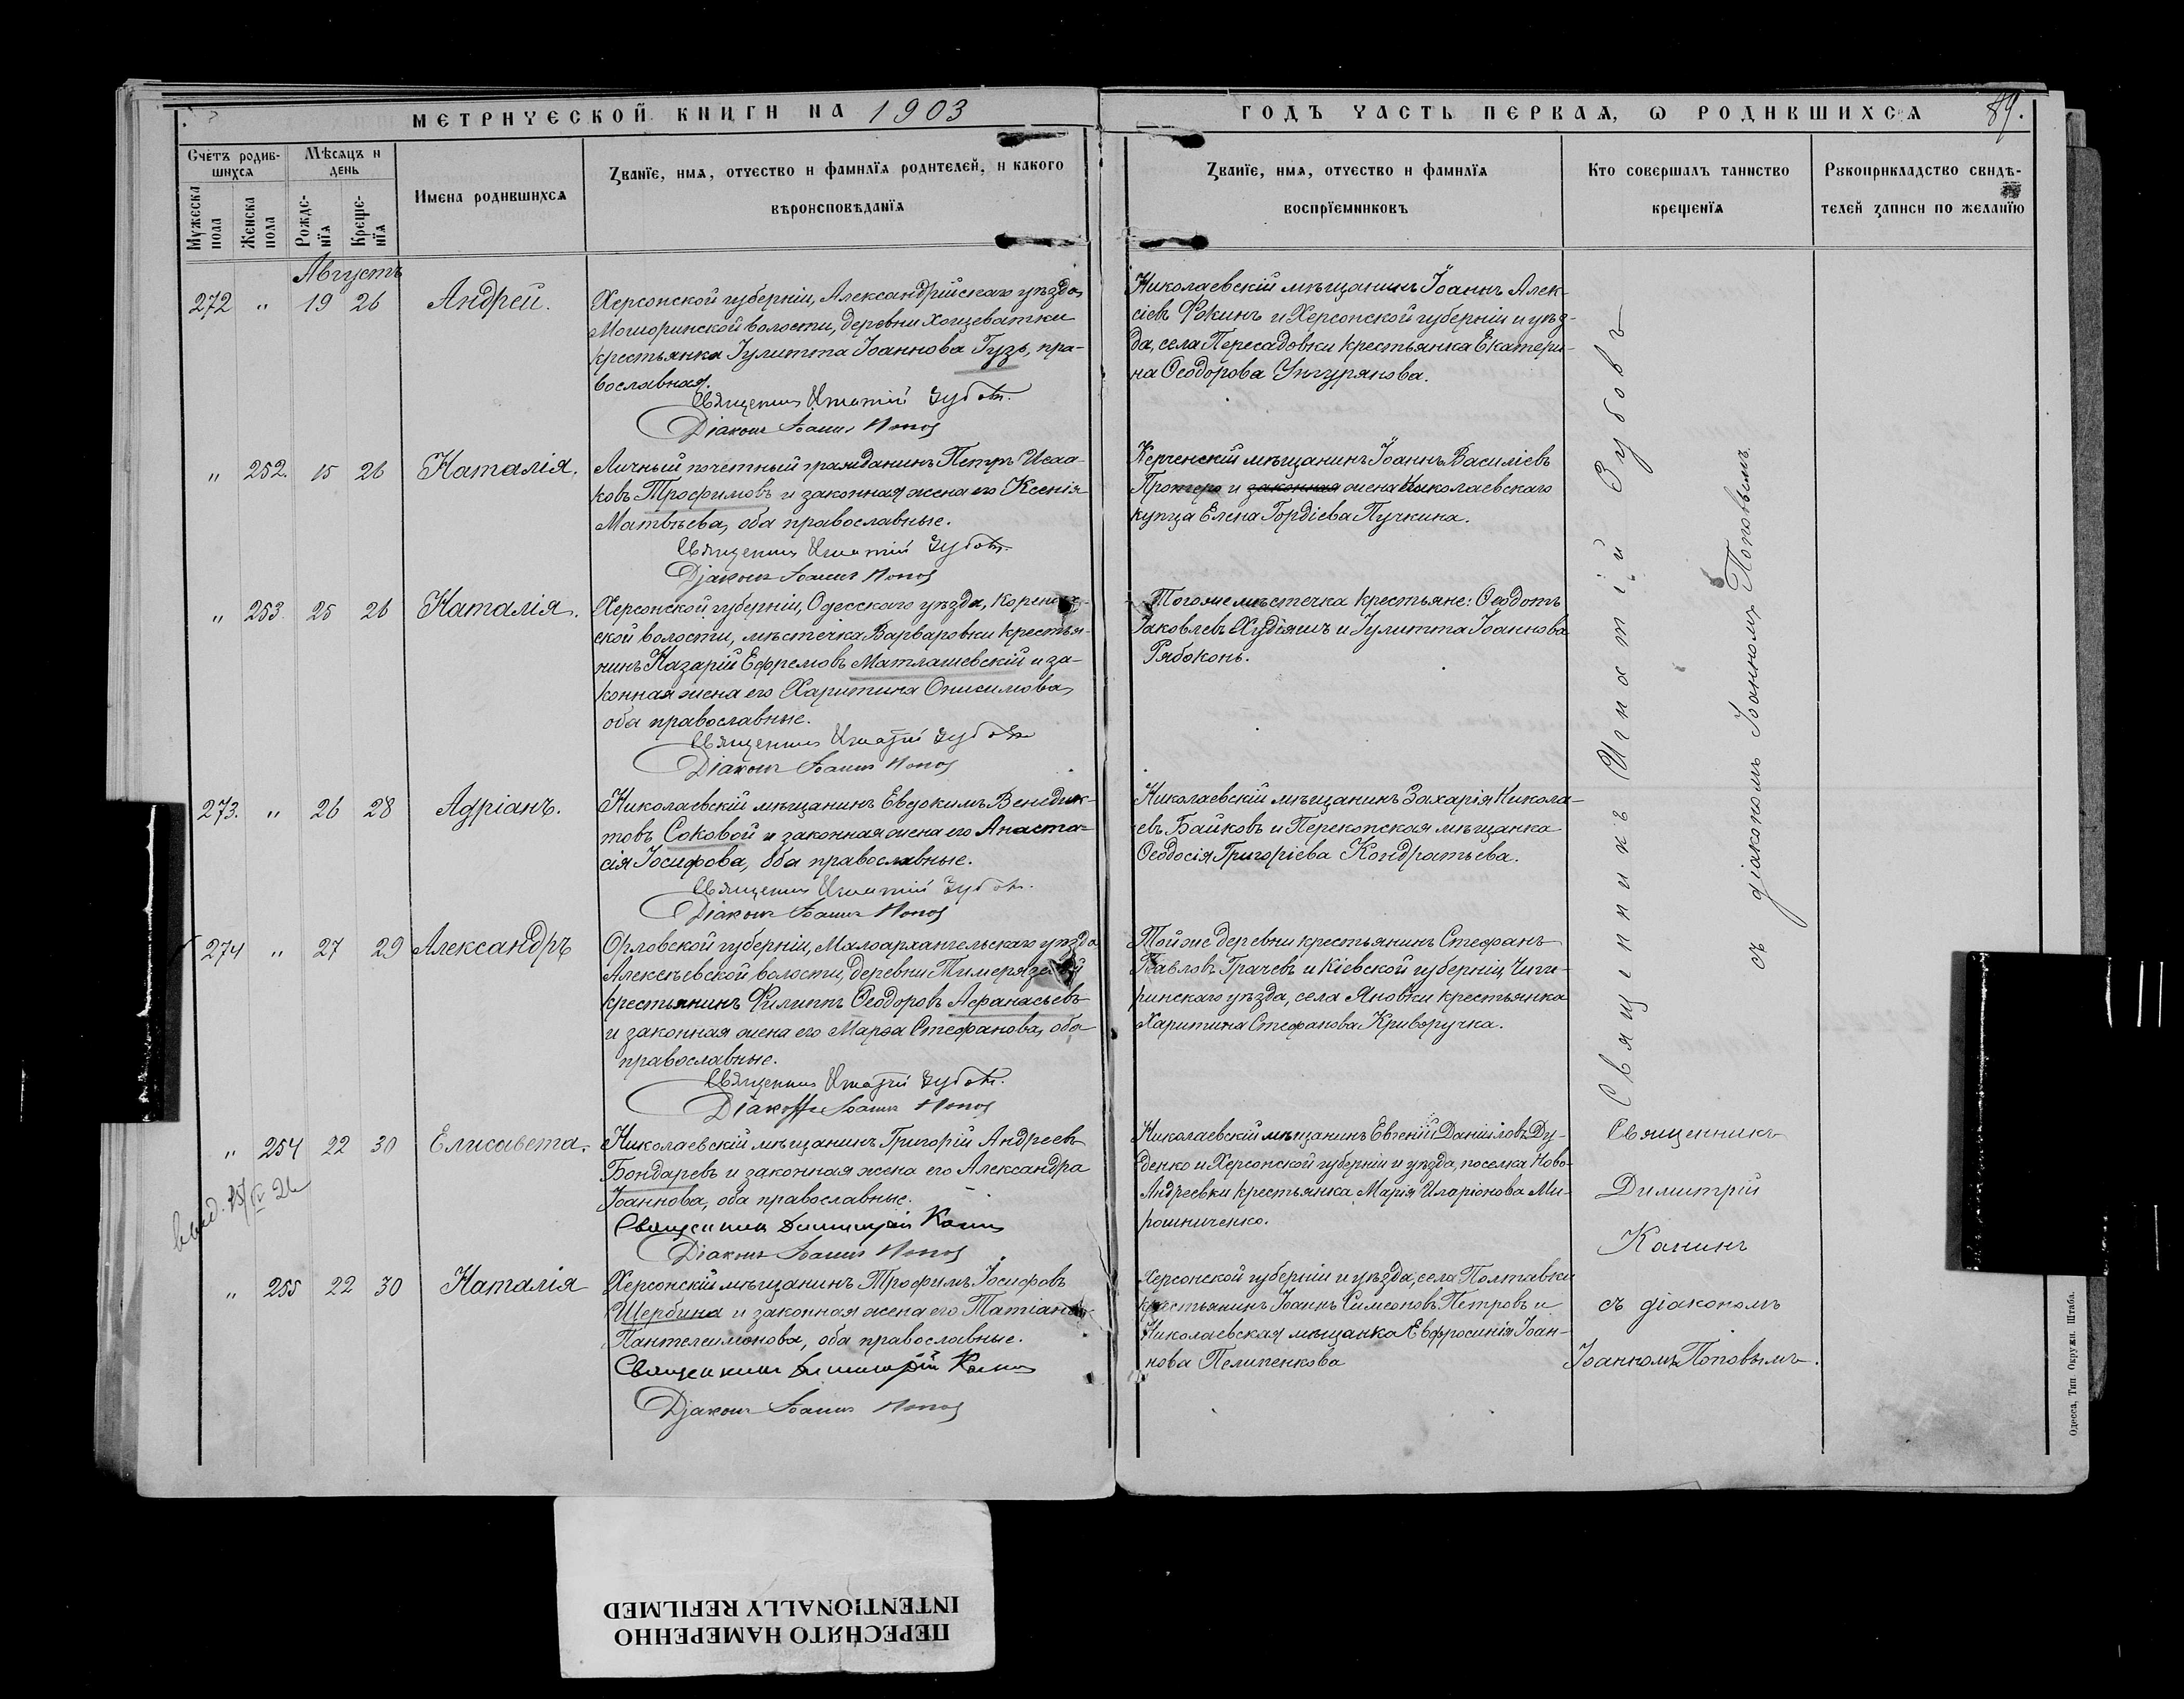 МЕТРИЧЕСКОЙ КНИГИ НА 1903
ГОДЪ ЧАСТЬ ПЕРВАЯ, Ѡ РОДИВШИХСЯ
89.
Счетъ родив-
шихся
Мѣсяцъ и
день
Мужеска
пола
Женска
пола
Рожде-
нїя
Креще-
нїя
Имена родившихся
Званїе, имя, отчество и фамилїя родителей, и какого
вѣроисповѣданїя
Званїе, имя, отчество и фамилїя
воспрїемниковъ
Кто совершалъ таинство
крещенїя
Рукоприкладство свидѣ-
телей записи по желанїю
Августъ
272 " 19 26 Андрей.
Херсонской губерніи, Александрійскаго уѣзда,
Мошоринской волости, деревни
крестьянка Іулитта Іоаннова Гузь, пра-
вославная.
Священникъ Игнатій Зубовъ.
Діаконъ Іоаннъ Поповъ
Николаевскій мѣщанинъ Іоаннъ Алек-
сіевъ Фокинъ и Херсонской губерніи и уѣз-
да, села Пересадовки крестьянка Екатери-
на Ѳеодорова Унгурянова.
" 252. 15 26 Наталія.
Личный почетный гражданинъ Петръ Исаа-
ковъ Трофимовъ и законная жена его Ксенія
Матвѣева, оба православные.
Священникъ Игнатій Зубовъ.
Діаконъ Іоаннъ Поповъ
Керченскій мѣщанинъ Іоаннъ Василіевъ
и законная жена Николаевскаго
купца Елена Гордіева Пучкина.
" 253. 25 26 Наталія.
Херсонской губерніи, Одесскаго уѣзда,
ской волости, мѣстечка Варваровки крестья-
нинъ Назарій Ефремовъ Матлашевскій и за-
конная жена его Харитина Онисимова,
оба православные.
Священникъ Игнатій Зубовъ
Діаконъ Іоаннъ Поповъ
Тогоже мѣстечка крестьяне: Ѳеодотъ
Іаковлевъ и Іулитта Іоаннова
Рябоконь.
273. " 26 28 Адріанъ.
Николаевскій мѣщанинъ Евдокимъ Венедик-
товъ Соковой и законная жена его Анаста-
сія Іосифова, оба православные.
Священникъ Игнатій Зубовъ.
Діаконъ Іоаннъ Поповъ
Николаевскій мѣщанинъ Захарія Никола-
евъ Байковъ и Перекопская мѣщанка
Ѳеодосія Григоріева Кондратьева.
274 " 27 29 Александръ
Орловской губерніи, Малоархангельскаго уѣзда
Алексѣевской волости, деревни
крестьянинъ Филиппъ Ѳеодоровъ Афанасьевъ
и законная жена его Марѳа Стефанова, оба
православные.
Священникъ Игнатій Зубовъ.
Діаконъ Іоаннъ Поповъ
Тойже деревни крестьянинъ Стефанъ
Павловъ Грачевъ и Кіевской губерніи, Чиги-
ринскаго уѣзда, села Яновки крестьянка
Харитина Стефанова Криворучка.
Священникъ Игнатій Зубовъ
съ діакономъ Іоанномъ Поповымъ.
" 254 22 30 Елисавета.
выд. 15/IV 26
Николаевскій мѣщанинъ Григорій Андреевъ
Бондаревъ и законная жена его Александра
Іоаннова, оба православные.
Священникъ Димитрій Канинъ
Діаконъ Іоаннъ Поповъ
Николаевскій мѣщанинъ Евгеній Даніиловъ Ду-
денко и Херсонской губерніи и уѣзда, поселка Ново-
Андреевки крестьянка Марія Иларіонова Ми-
рошниченко.
Священникъ
Димитрій
Канинъ
съ діакономъ
Іоанномъ Поповымъ.
" 255 22 30 Наталія
Херсонскій мѣщанинъ Трофимъ Іосифовъ
Щербина и законная жена его Татіана
Пантелеимонова, оба православные.
Священникъ Димитрій Канинъ
Діаконъ Іоаннъ Поповъ
Херсонской губерніи и уѣзда, села Полтавки
крестьянинъ Іоаннъ Симеоновъ Петровъ и
Николаевская мѣщанка Евфросинія Іоан-
нова Пелипенкова
Одесса, Тип. Окружн. Штаба.
ПЕРЕСНЯТО НАМЕРЕННО
INTENTIONALLY REFILMED